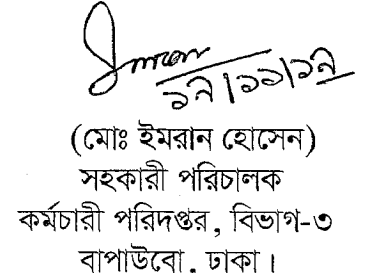 ১৯/১১/১৯
(মোঃ ইমরান হোসেন)
সহকারী পরিচালক
কর্মচারী পরিদপ্তর, বিভাগ-৩
বাপাউবো, ঢাকা।